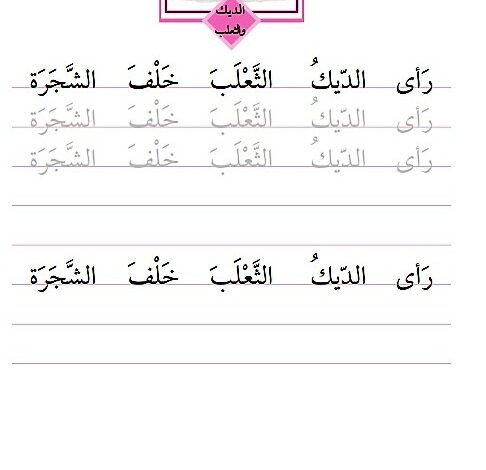 الديك
والثعلب
رَأى الدّيكُ الثَّعْلَبَ خَلْفَ الشَّجَرَة
رَأى الدّيكُ الثَّعْلَبَ خَلْفَ الشَّجَرَة
رَأى الدّيكُ الثَّعْلَبَ خَلْفَ الشَّجَرَة
رَأى الدّيكُ الثَّعْلَبَ خَلْفَ الشَّجَرَة